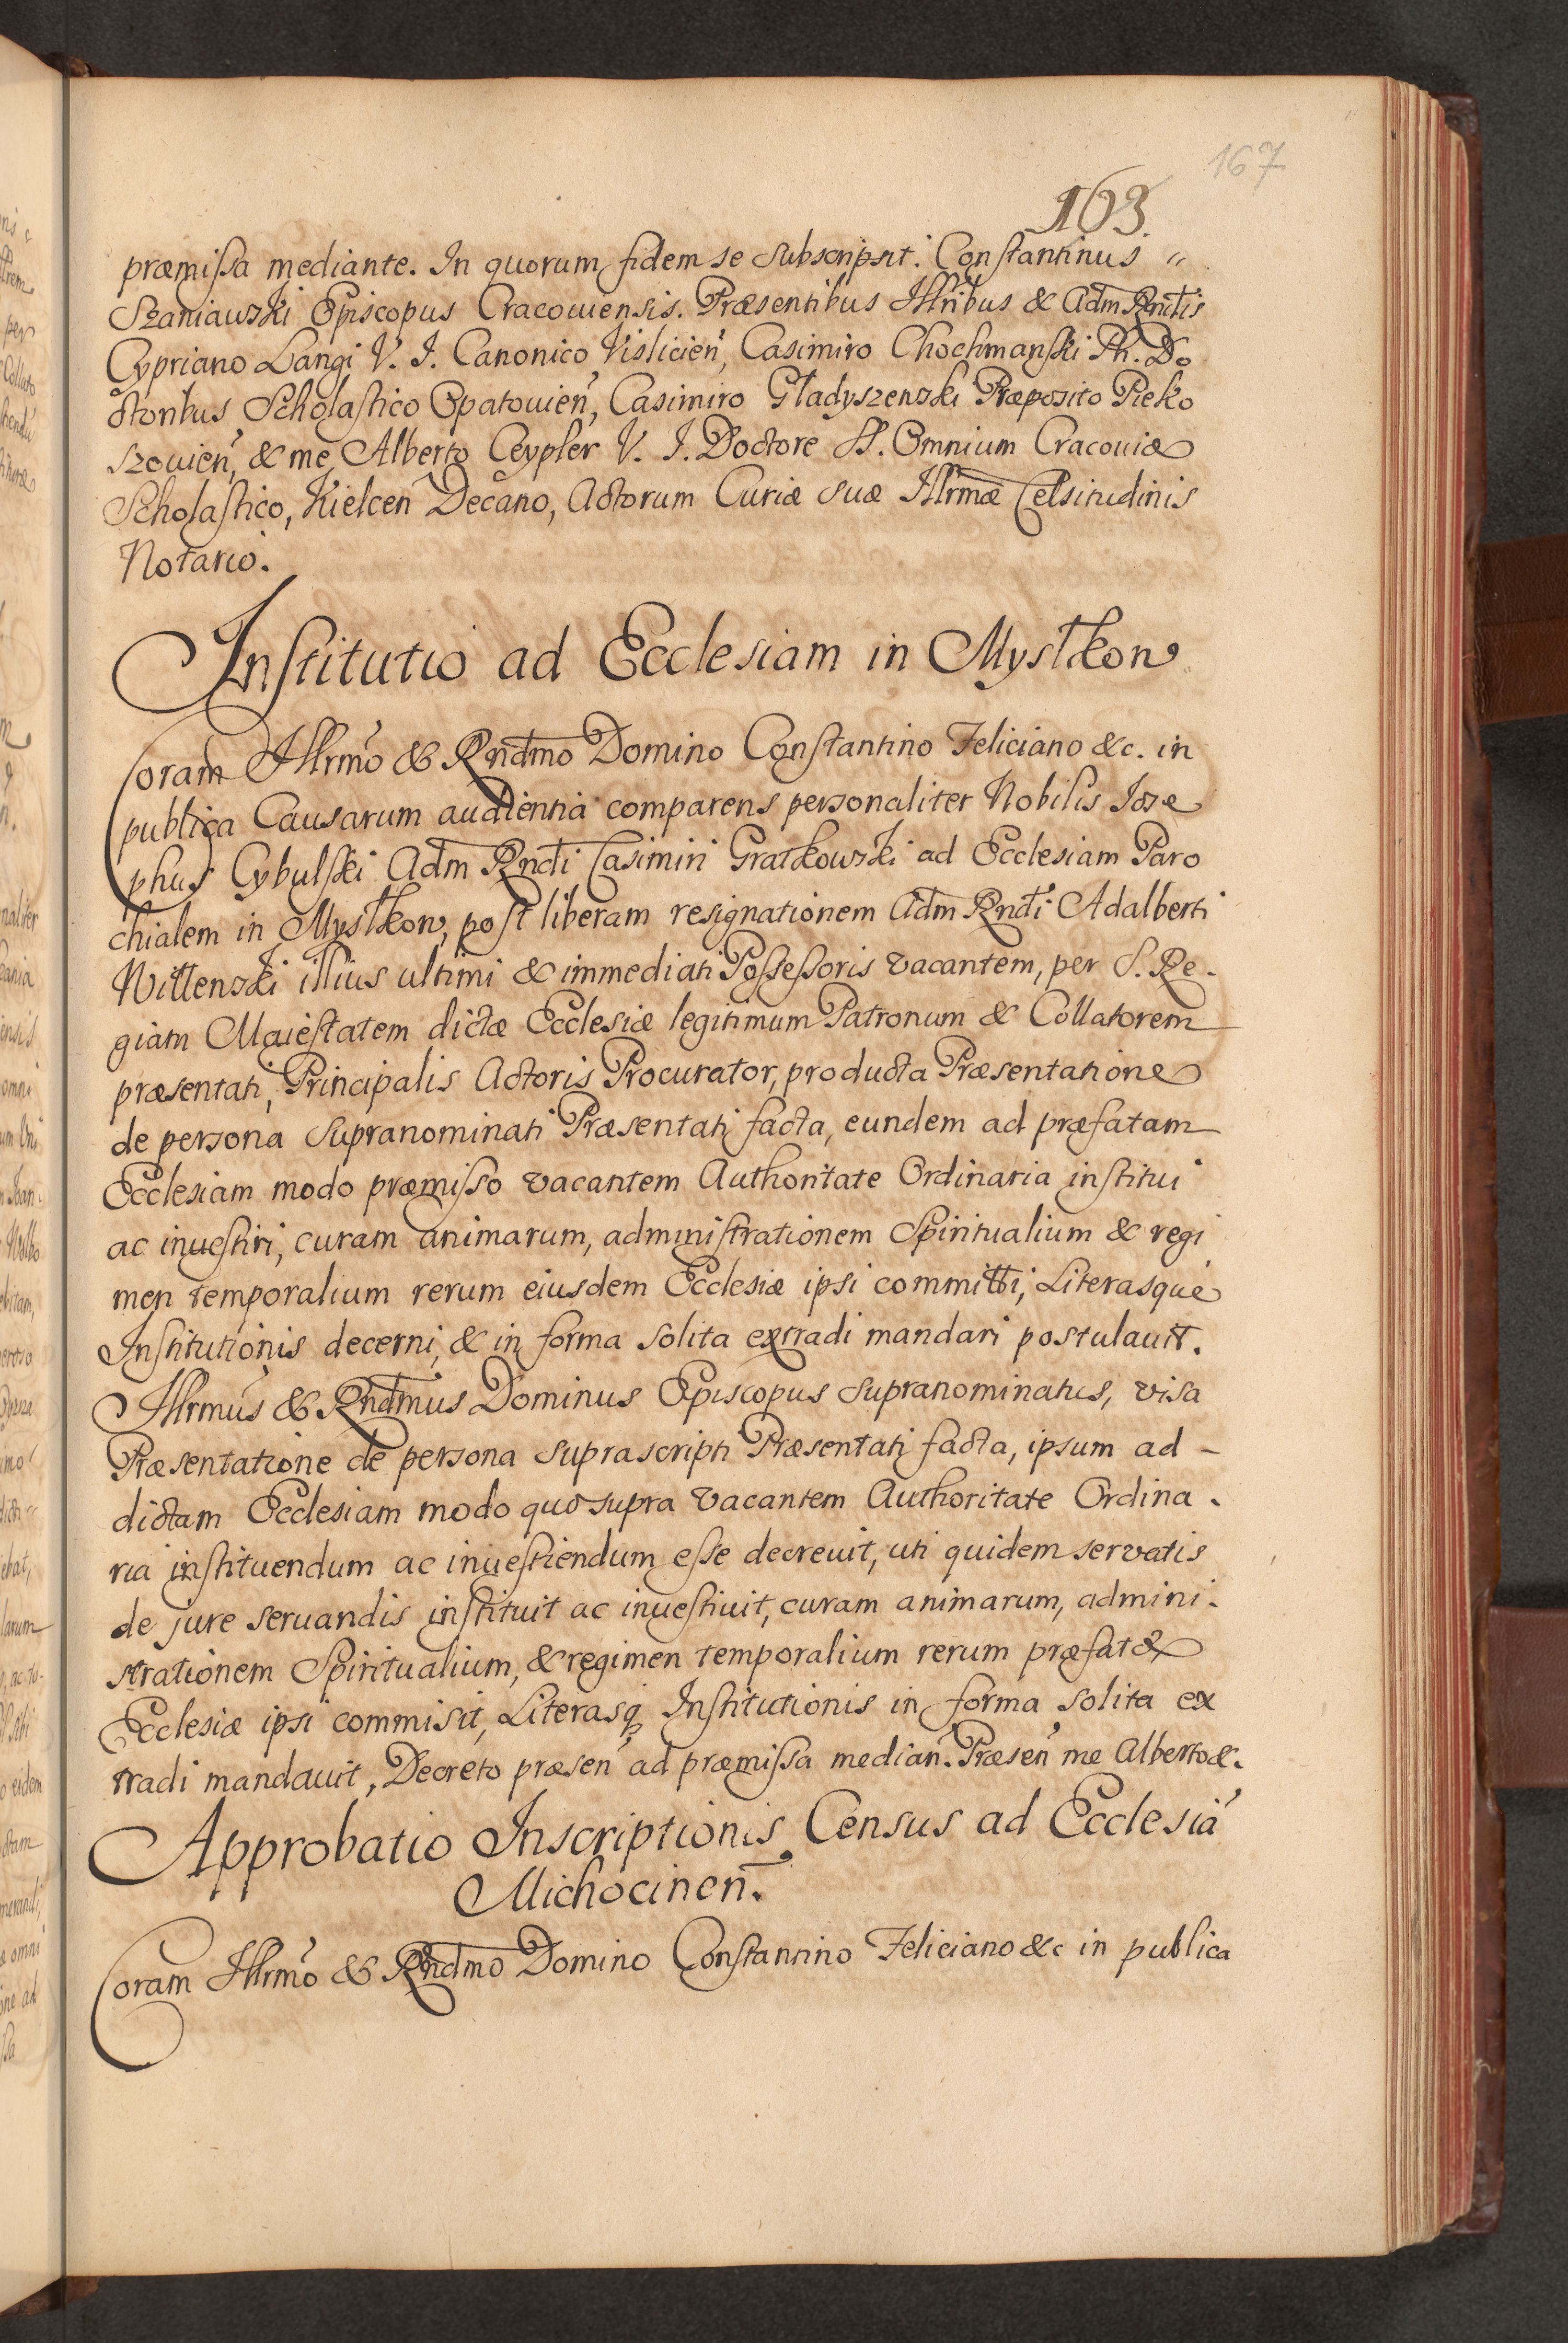 167
163.
præmissa mediante. In quorum fidem se subscripsit. Constantinus "
Szaniawski Episcopus Cracouiensis. Præsentibus Illribus & Adm Rndis
Cypriano Langi V. I. Canonico Vislicień, Casimiro Chochmanski Ph. Do
ctoribus Scholastico Opatouień, Casimiro Gładyszenski Præposito Pieko
szouień, & me Alberto Ceypler V. I. Doctore SS. Omnium Cracouiæ
Scholastico, Kielcen Decano, Actorum Curiæ suæ Illrmæ Celsitudinis
Notario.
Institutio ad Ecclesiam in Mystkon
Coram Illrmo & Rndmo Domino Constantino Feliciano &c. in
publica Causarum audientia comparens personaliter Nobilis Jose
phus Cybulski Adm Rndi Casimiri Gratkowski ad Ecclesiam Paro
chialem in Mystkon, post liberam resignationem Adm Rndi Adalberti
Witłenski illius ultimi & immediati Possessoris vacantem, per S. Re-
giam Maiestatem dictæ Ecclesiæ legitimum Patronum & Collatorem
præsentati, Principalis Actoris Procurator, producta Præsentatione
de persona supranominati Præsentati facta, eundem ad præfatam
Ecclesiam modo præmisso vacantem Authoritate Ordinaria institui
ac inuestiri, curam animarum, administrationem Spiritualium & regi
men temporalium rerum eiusdem Ecclesiæ ipsi committi, Literasque
Institutionis decerni, & in forma solita extradi mandari postulauit.
Illrmus & Rndmus Dominus Episcopus supranominatus, visa
Præsentatione de persona suprascripti Præsentati facta, ipsum ad -
dictam Ecclesiam modo quo supra vacantem Authoritate Ordina -
ria instituendum ac inuestiendum esse decreuit, uti quidem servatis
de jure seruandis instituit ac inuestiuit, curam animarum, admini-
strationem Spiritualium, & regimen temporalium rerum præfatæ
Ecclesiæ ipsi commisit, Literasq Institutionis in forma solita ex
tradi mandauit, Decreto præseń ad præmissa mediań. Præseń me Alberto &.
Approbatio Inscriptionis Census ad Ecclesiā
Michocinen.
Coram Illrmo & Rndmo Domino Constantino Feliciano &c in publica